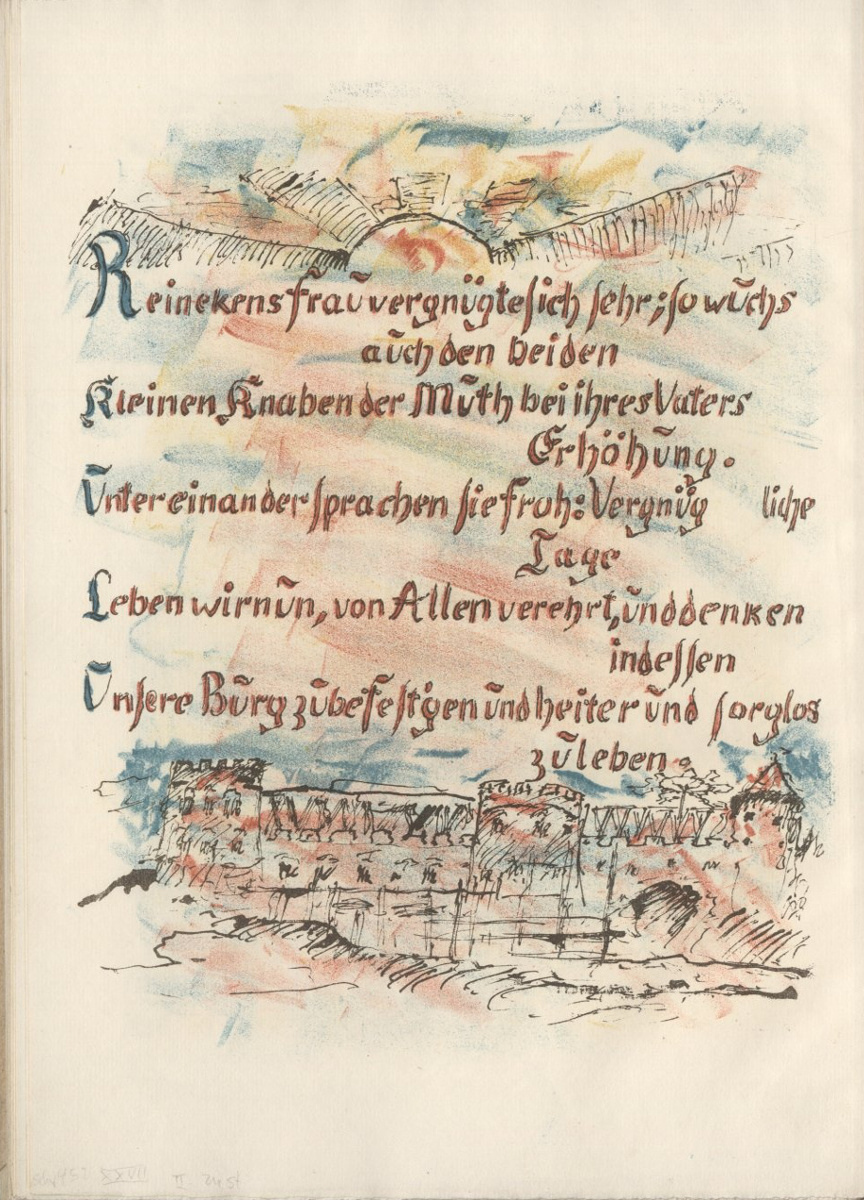 Reinekens Frau vergnügte sich sehr; so wuchs
auch den beiden
Kleinen Knaben der Muth bei ihres Vaters
Erhöhung.
Unter einander sprachen sie froh: Vergnüg liche
Tage
Leben wir nun, von Allen verehrt, und denken
indessen
Unsere Burg zu befestgen und heiter und sorglos
zu leben.
XXVII